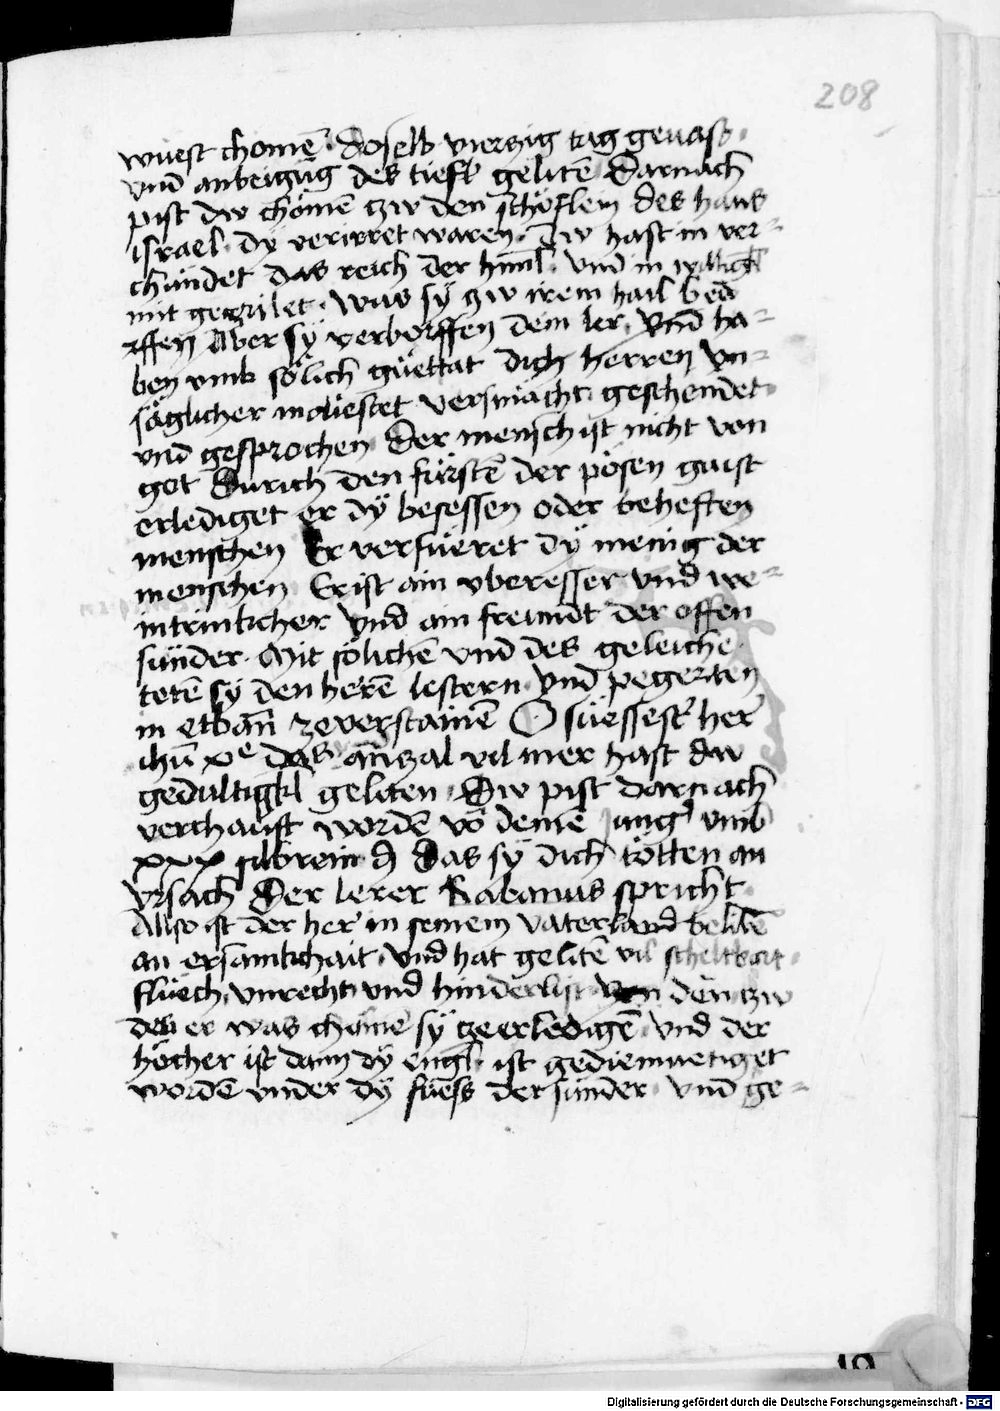 208
wuest chomē · doselb vierczig tag gevast ·
vnd anbeigūg des tiefls geliten Darnach
pist dw chömē zw den schöflein des haus
israel · dÿ verirret waren · Dw hast in ver-
chündet das reich der himl · vnd in willigkl
mit getailet · was sÿ zw irem hail bed
rffen Aber sÿ verborffen dein ler · Vnd ha-
ben vmb sölich güettat dich herren vn-
säglicher maiestet versmächt · geschendet
vnd gesprochen Der mensch ist nicht von
got Durich den fürstē der pösen gaist
erlediget er dÿ besessen oder beheften
menschen Er verfüeret dÿ menig der
menschen Er ist ain vberesser vnd we-
intrinkcher Vnd ain freundt der offen
sünder · Mit sölichē vnd des geleichē
tetē sÿ den herē lestern · Vnd pegerten
in etban zeverstainē O süessest her
ihū xpe das alczal vil mer hast dw
gedultigkl geliten · Dw pist darnach
verchauft wordē vō deinē jung vmb
xxx silbrein d Das sÿ dich tötten an
vrsach Der lerer Rabanus spricht
Also ist der her in seinem vaterland belibē
an ersamkchait · vnd hat gelitē vil scheltbart ·
flüech · vnrecht · vnd hinderlist · Von den zw
den er was chömē sÿ ze erledigē · vnd der
höcher ist dann dÿ engl · ist gediemuetiget
wordē vnder dÿ füess der sünder · vnd ge-
Digitalisierung gefördert durch die Deutsche Forschungsgemeinschaft - DFG